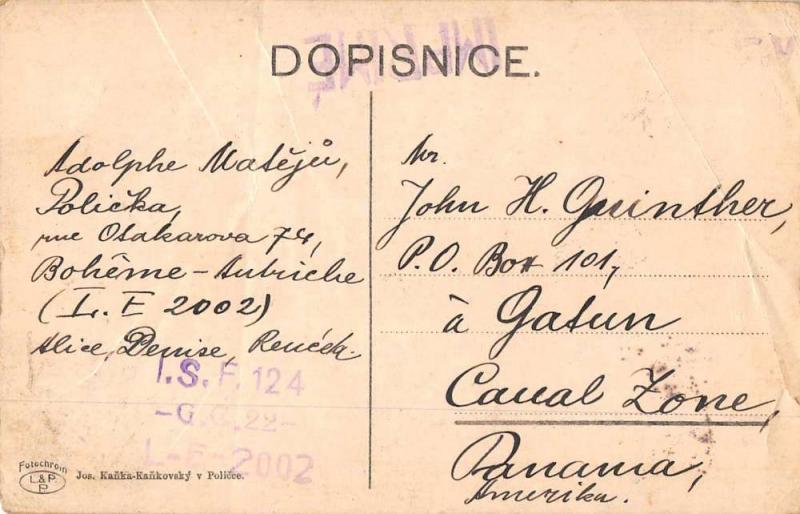 DOPISNICE.
Adolphe Matějů,
Polička,
rue Otakarova 74,
Bohême - Autriche
(L. E 2002)
Alice, Denise,
I.S.F. 124
-G.G. 22-
L-E-2002
Mr.
John H. Guinther,
P.O. Box 101,
à Gatun
Canal Zone,
Panama,
Amerika.
Fotochrom
L&P.
P
Jos. Kaňka-Kaňkovský v Poličce.